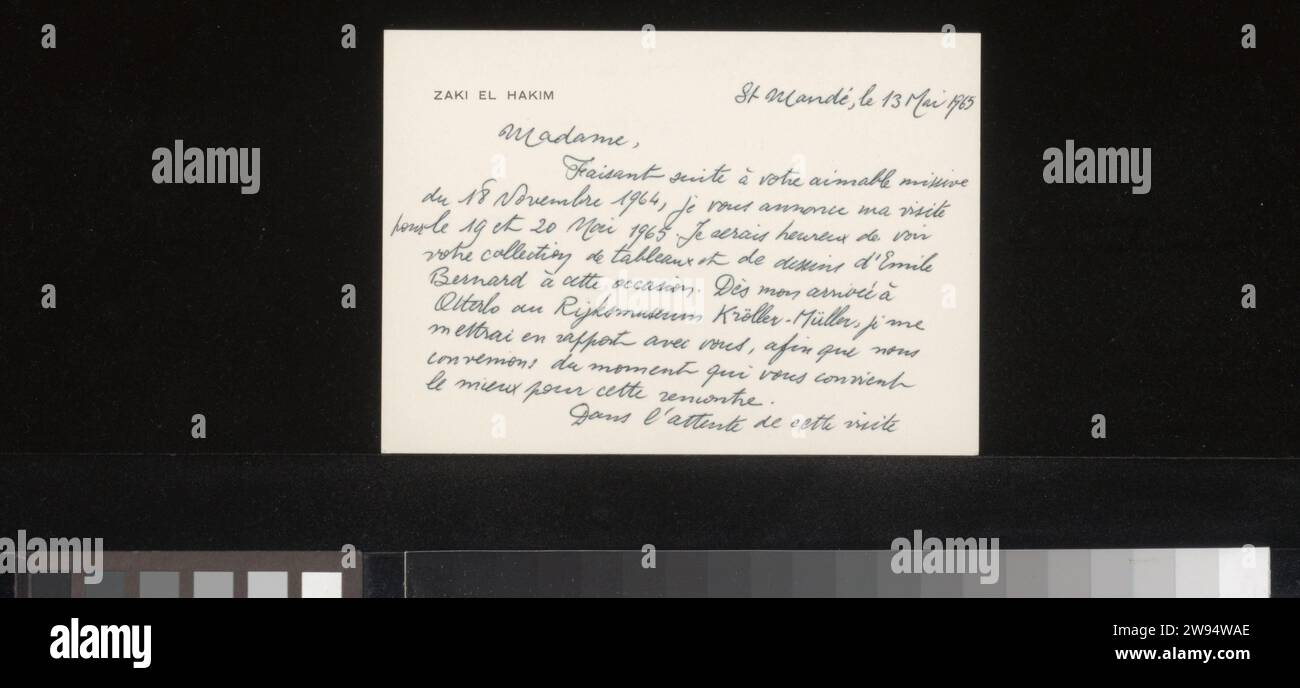 ZAKI EL HAKIM
St Mandé, le 13 Mai 1965
Madame,
Faisant suite à votre aimable missive
du 18 Novembre 1964, je vous annonce ma visite
pour le 19 et 20 Mai 1965. Je serais heureux de voir
votre collection de tableaux et de dessins d'Emile
Bernard à cette occasion. Dès mon arrivée à
Otterlo au Rijksmuseum Kröller-Müller, je me
mettrai en rapport avec vous, afin que nous
convenions du moment qui vous convient
le mieux pour cette rencontre.
Dans l'attente de cette visite
alamy
alamy
alamy
a
a
a
a
a
a
a
a
a
a
a
alamy
alamy
alamy
Image ID: 2W94WAE
www.alamy.com